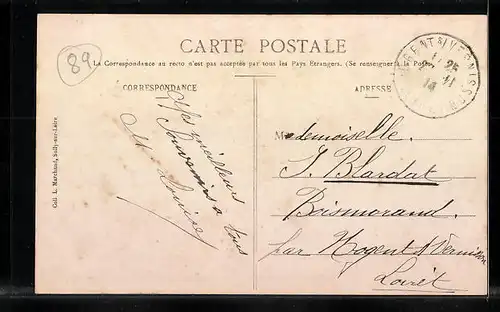 89
CARTE POSTALE
La Correspondance au recto n'est pas acceptée par tous les Pays Etrangers. (Se renseigner à la Poste)
CORRESPONDANCE
ADRESSE
Mes meilleurs
Souvenirs à tous
Louise
Mademoiselle.
J. Blardat
Boismorand.
par Nogent s/ Vernisson
Loiret
Coll. L. Marchand, Sully-sur-Loire
NOGENT S/ VERNISSON